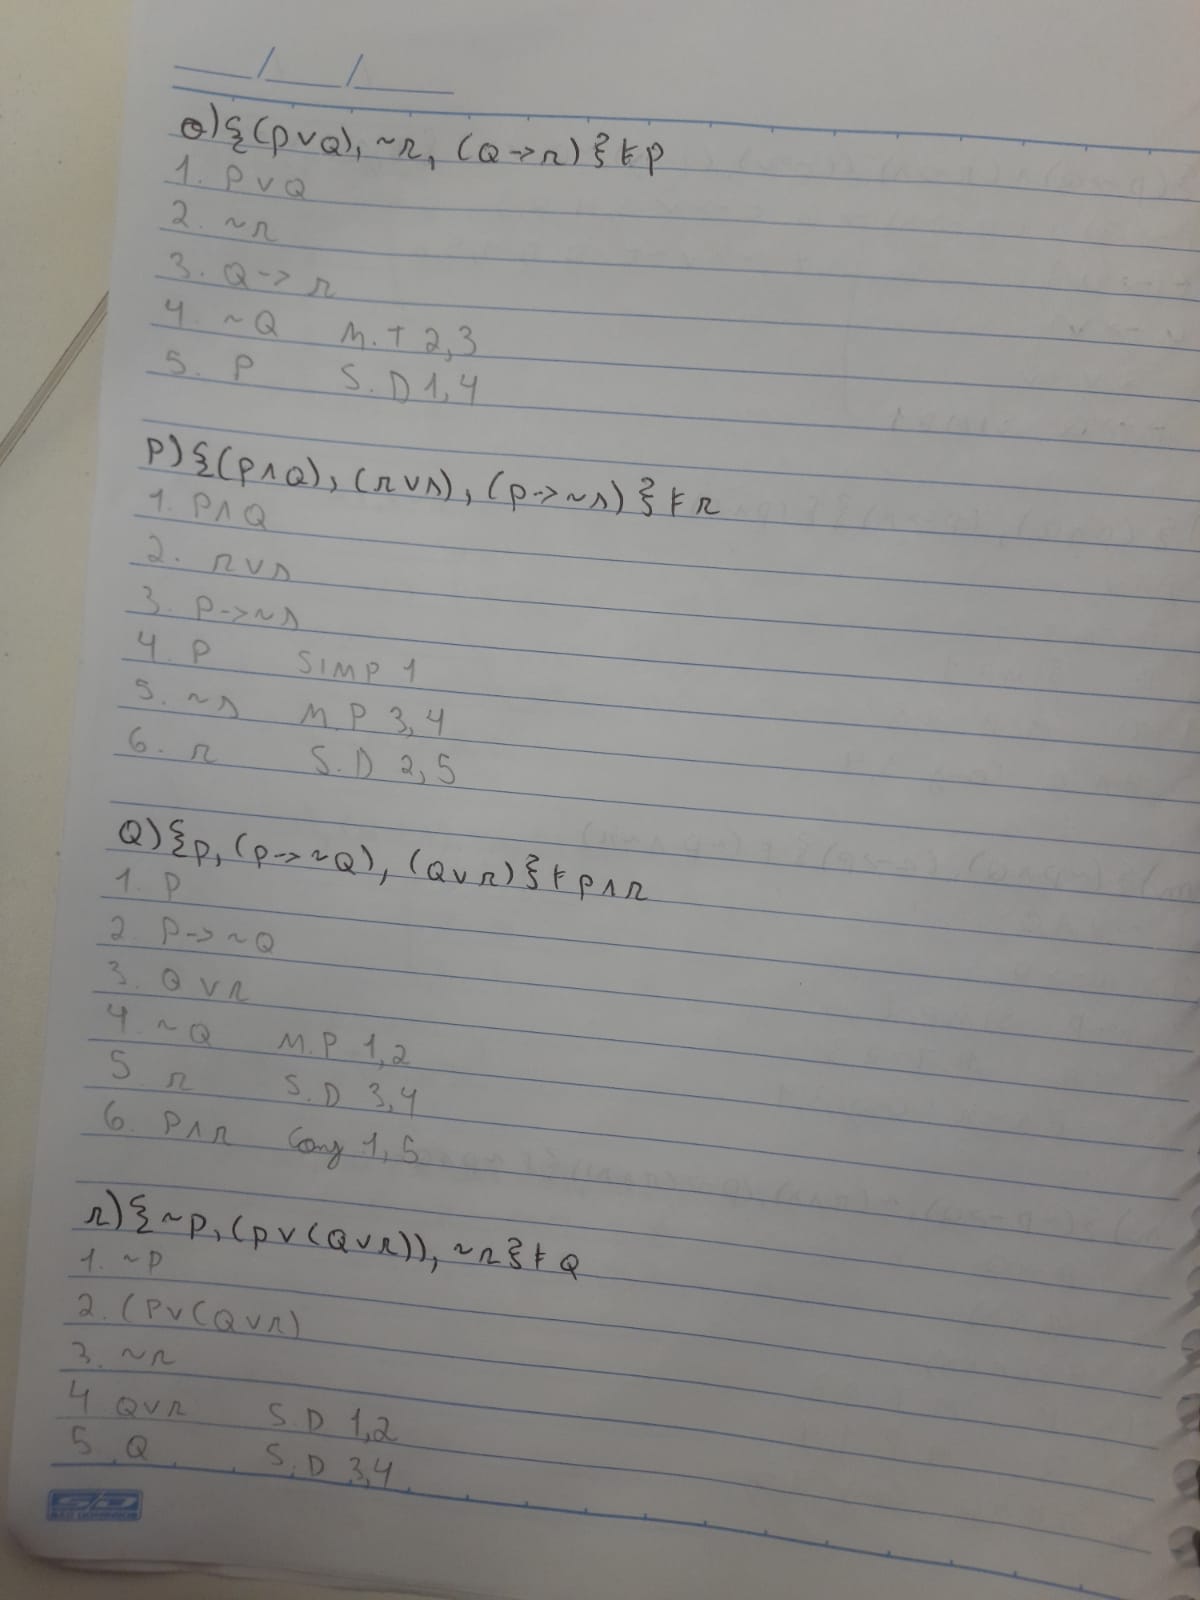 o) {(p v Q), ~r, (Q -> r)} ⊧ p
1. P v Q
2. ~r
3. Q -> r
4. ~Q M.T 2,3
5. P S.D 1,4
P) {(p ∧ Q), (r v s), (p -> ~s)} ⊧ r
1. P ∧ Q
2. r v s
3. P -> ~s
4. P SIMP 1
5. ~s M.P 3,4
6. r S.D 2,5
Q) {p, (p -> ~Q), (Q v r)} ⊧ p ∧ r
1. P
2. P -> ~Q
3. Q v r
4. ~Q M.P 1,2
5 r S.D 3,4
6. P ∧ r Conj 1,5
r) {~p, (p v (Q v r)), ~r} ⊧ Q
1. ~P
2. (P v (Q v r)
3. ~r
4 Q v r S.D 1,2
5. Q S.D 3,4
S/D
SÃO DOMINGOS